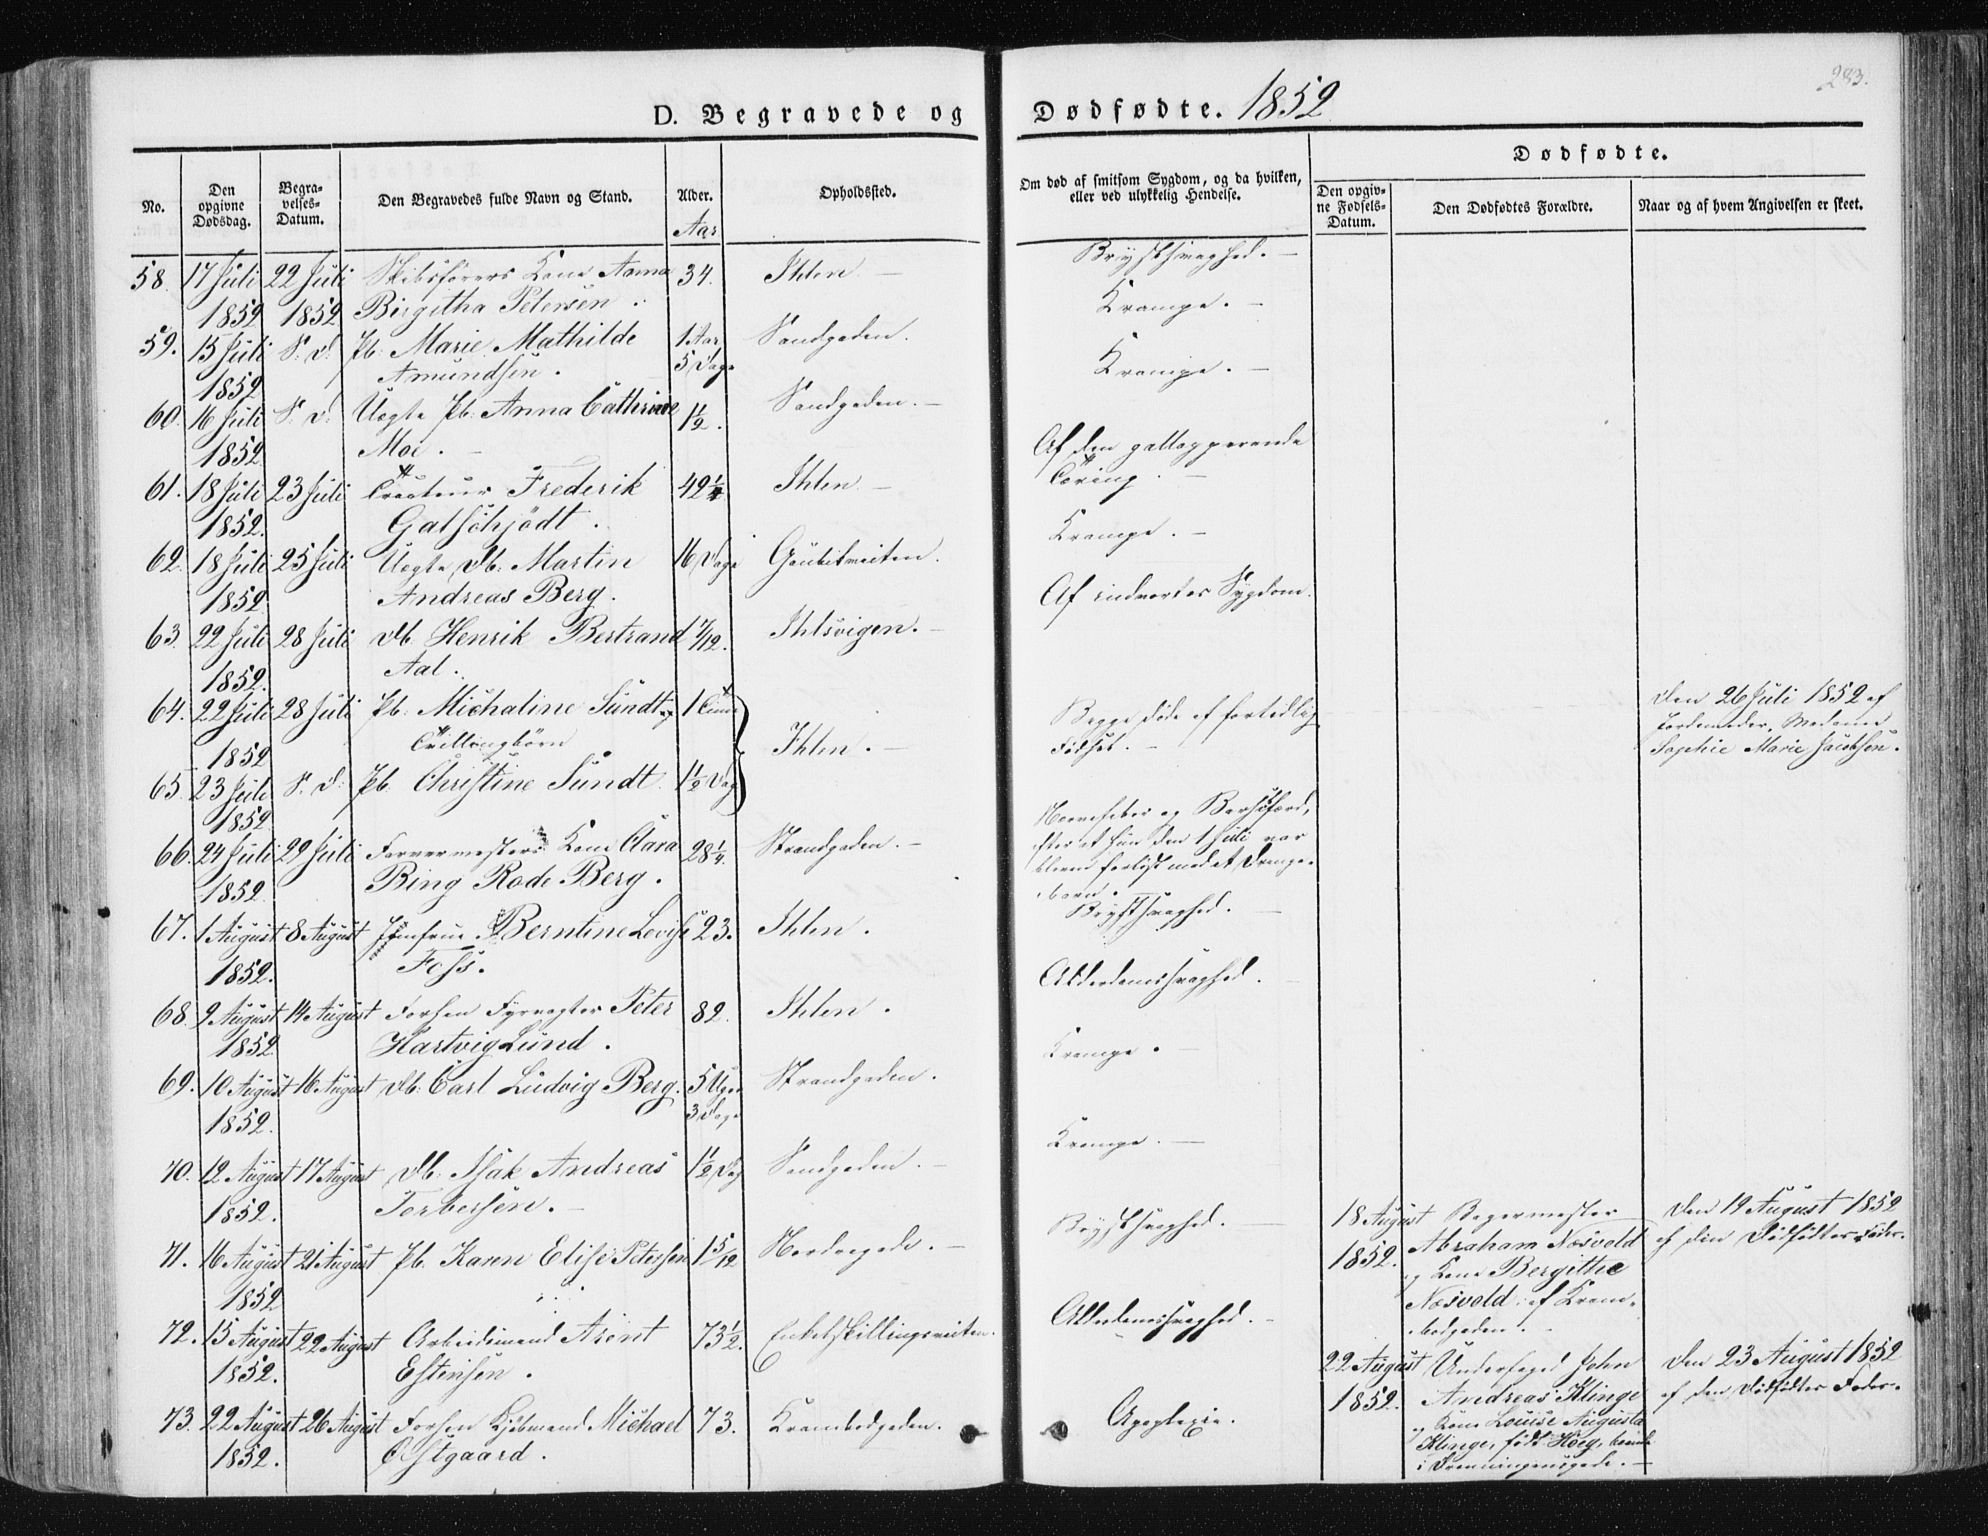 283.
D. Begravede og Dødfødte. 1852
No.
Den opgivne Dødsdag.
Begravelses-Datum.
Den Begravedes fulde Navn og Stand.
Alder.
Aar
Opholdssted.
Om død af smitsom Sygdom, og da hvilken,
eller ved ulykkelig Hendelse.
Dødfødte.
Den opgivne Fødsels-Datum.
Den Dødfødtes Forældre.
Naar og af hvem Angivelsen er skeet.
58. 17 Juli 22 Juli Skibsförers Kone Anna 34. Ihlen. — Brystsvaghed. —
1852 1852 Birgitha Petersen.
59. 15 Juli S. d. Pb. Marie Mathilde 1 Aar Sandgaden. Krampe. —
1852 Amundsen. 5 Dage
60. 16 Juli S. d. Uegte Pb. Anna Cathrine 1½. Sandgaden. — Krampe. —
1852 Moe. —
61. 18 Juli 23 Juli Frederik 42¼ Ihlen. — Af den galopperende
1852. Gatschjödt. Tæring. —
62. 18 Juli 25 Juli Uegte Db. Martin 16 Dage Gaubekveiten. Krampe. —
1852 Andreas Berg.
63. 22 Juli 28 Juli Db. Henrik Bertrand 7/12. Ihlsvigen. — Af indvortes Sygdom.
1852. Aal.
64. 22 Juli 28 Juli Pb. Michaline Sundt, 1 Time Begge döde af fortidlig Den 26 Juli 1852 af
1852 Tvillingbörn Ihlen. — Födsel. — Jordemoder, Madame
Sophie Marie Jacobsen.
65. 23 Juli S. d. Pb. Christine Sundt. 1½ Dag
1852
66. 24 Juli 29 Juli Farvermesters Kone Clara 28¼. Strandgaden. — Nervefeber og Barselfærd,
1852. Bing Rode Berg. efter at hun den 1 Juli var
bleven forlöst med et Drenge-
barn.
67. 1 August 8 August Jomfrue Berntine Lovise 23. Ihlen. Brystsvaghed. —
1852. Foss.
68. 9 August 14 August Forhen Fyrvogter Peter 82. Ihlen. Alderdomssvaghed.
1852 Hartvig Lund.
69. 10 August 16 August Db. Carl Ludvig Berg. 5 Uger Strandgaden. Krampe. —
1852. 3 Dage
70. 12 August 17 August Db. Isak Andreas 1½ Dag Sandgaden. — Krampe. —
1852. Torbersen. —
71. 16 August 21 August Pb. Karen Elise Petersen 1 5/12 Nordregade. — Brystsvaghed. —
1852
18 August Bagermester Den 19 August 1852
1852. Abraham Næsvold af den Dödfödtes Fader.
og Kone Bergithe
Næsvold: af Kram-
bodgaden. —
72. 15 August 22 August Arbeidsmand Arent 73½. Enkeltskillingsveiten. Alderdomssvaghed. —
1852. Estensen.
22 August Underfoged John Den 23 August 1852
1852. Andreas Klinge af den Dödfödtes Fader.
og Kone Louise Augusta
Klinge, född Höeg, boende
i Dronningensgade. —
73. 22 August 26 August Forhen Kjöbmand Michael 73. Krambodgaden. Apoplexie.
1852. Østgaard.